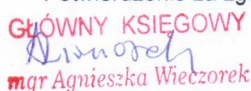 GŁÓWNY KSIĘGOWY
mgr Agnieszka Wieczorek